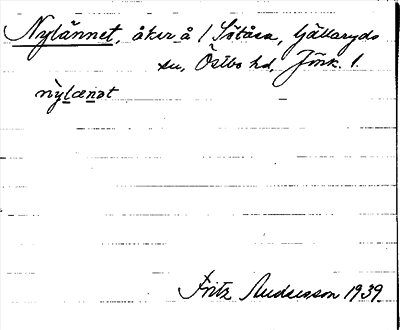 Nylännet, åker å 1 Sötåsa, Gällaryds
sn, Östbo hd, Jönk. l.
nylænət
Fritz Andersson 1939.